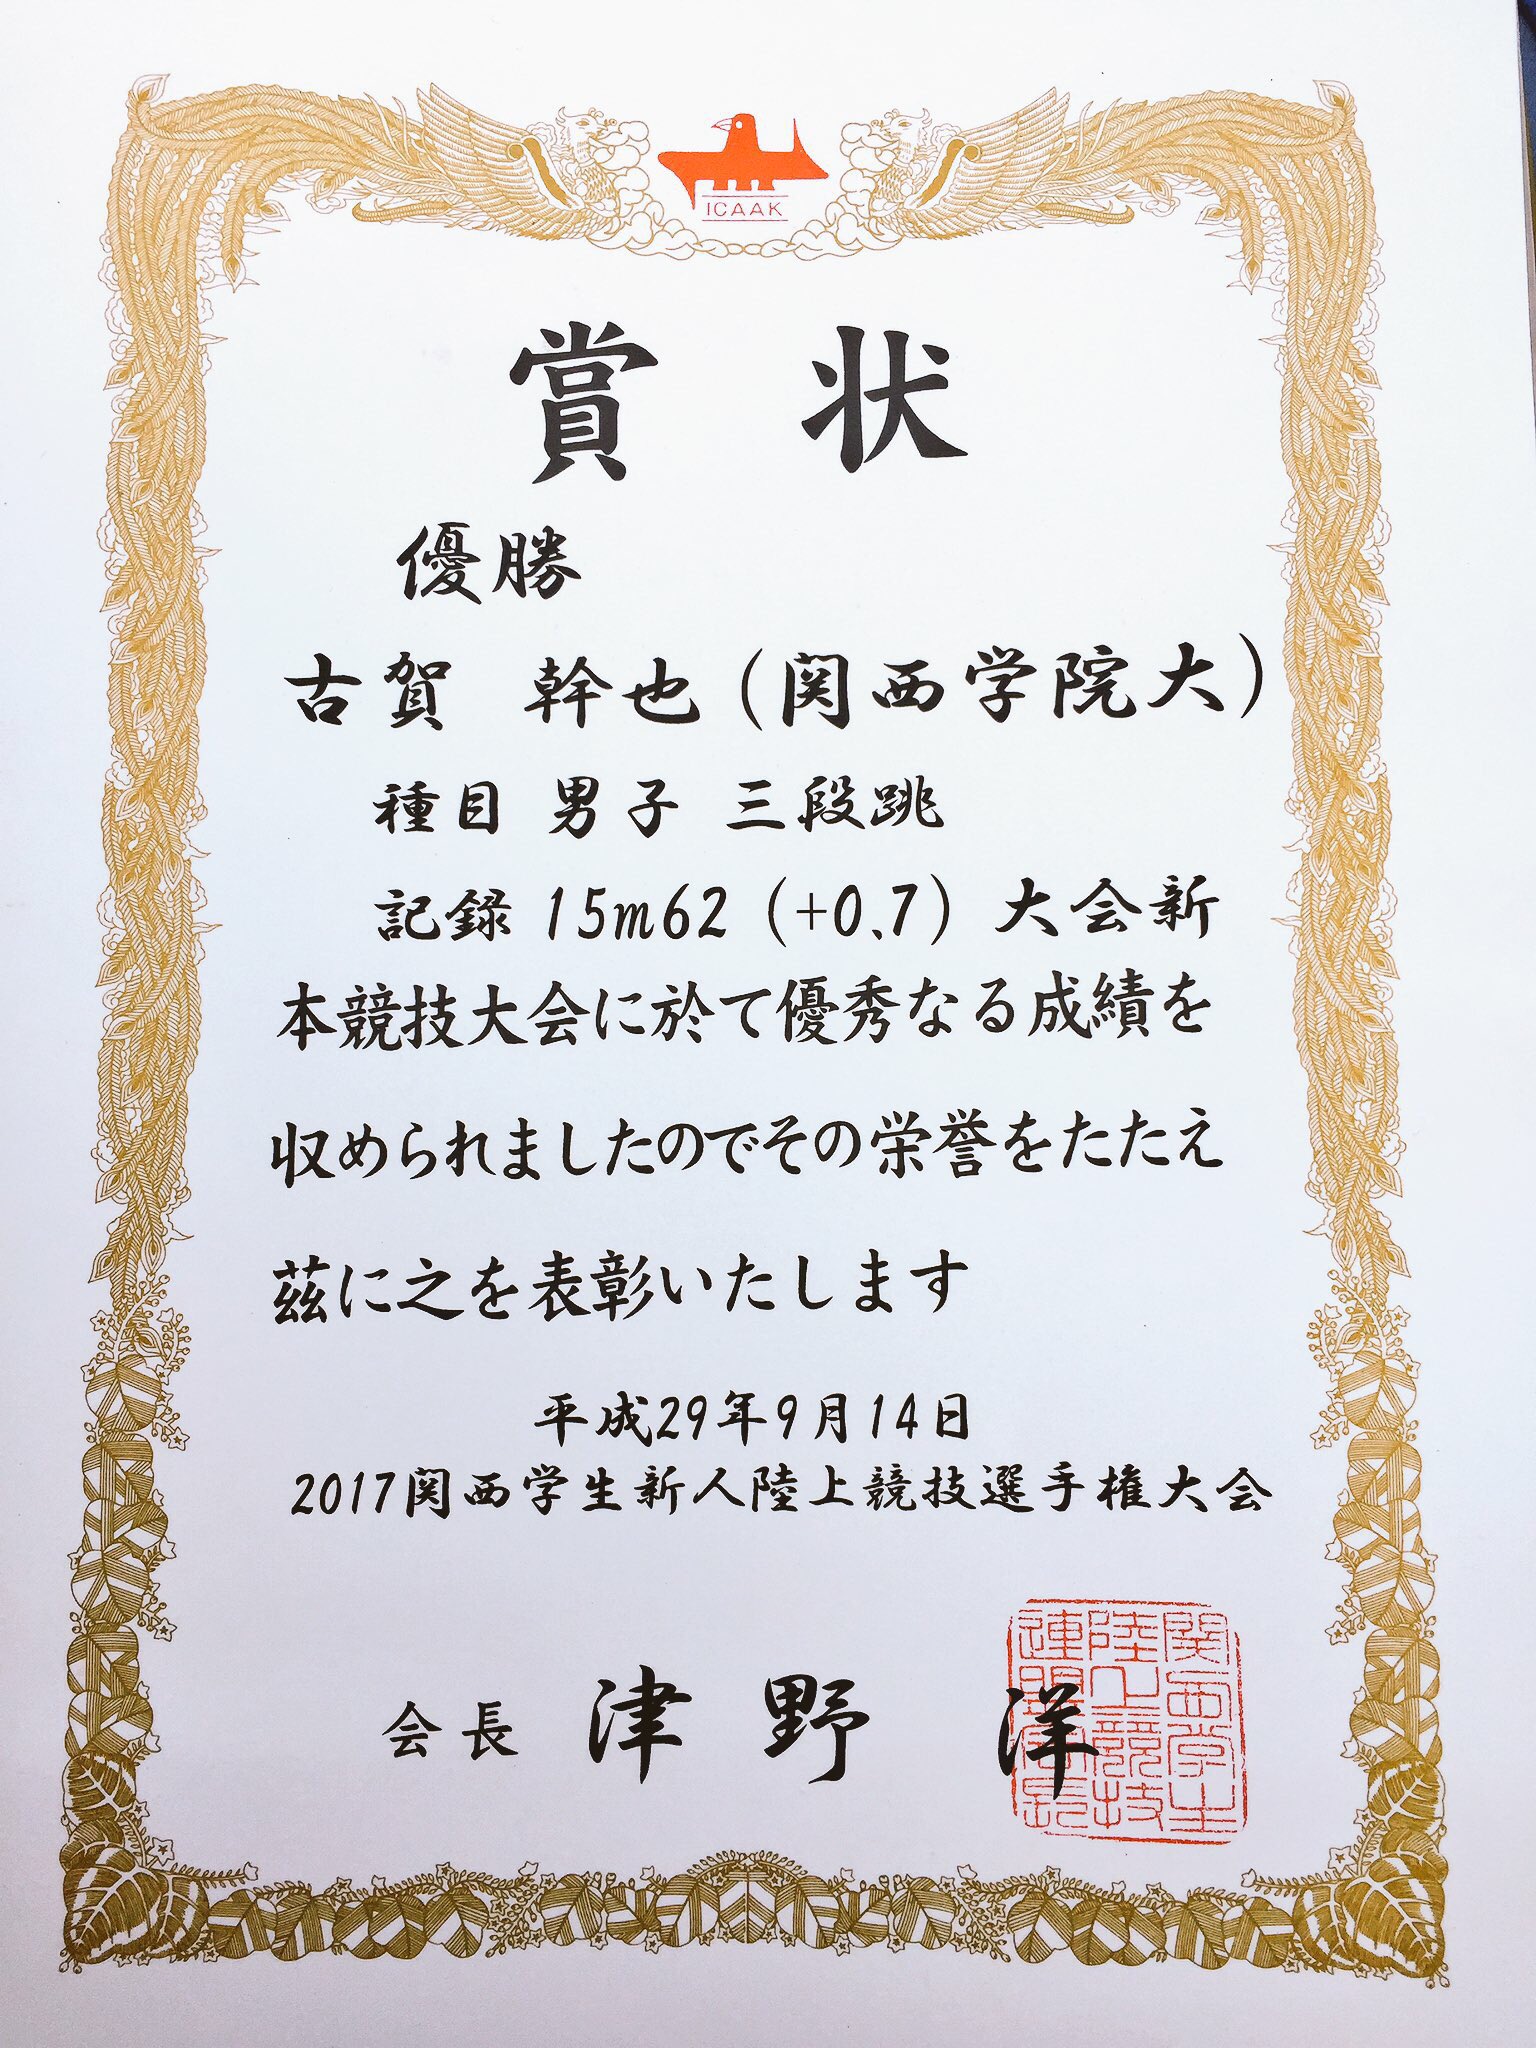 ICAAK
賞 状
優勝
古賀 幹也(関西学院大)
種目 男子 三段跳
記録 15m62 (+0.7) 大会新
本競技大会に於て優秀なる成績を
収められましたのでその栄誉をたたえ
茲に之を表彰いたします
平成29年9月14日
2017関西学生新人陸上競技選手権大会
会長 津野 洋
関西学生
陸上競技
連盟会長